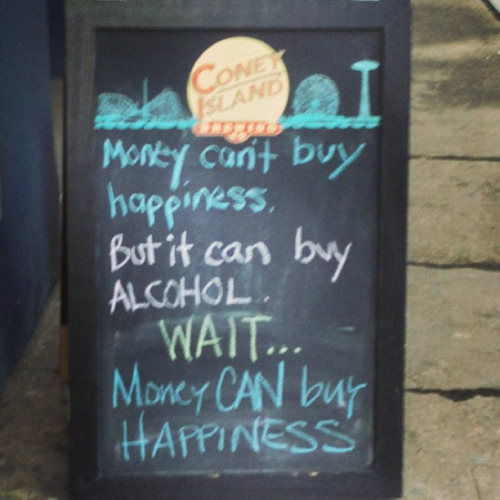 CONEY
ISLAND
Money can't buy
happiness.
But it can buy
ALCOHOL.
WAIT...
Money CAN buy
HAPPINESS